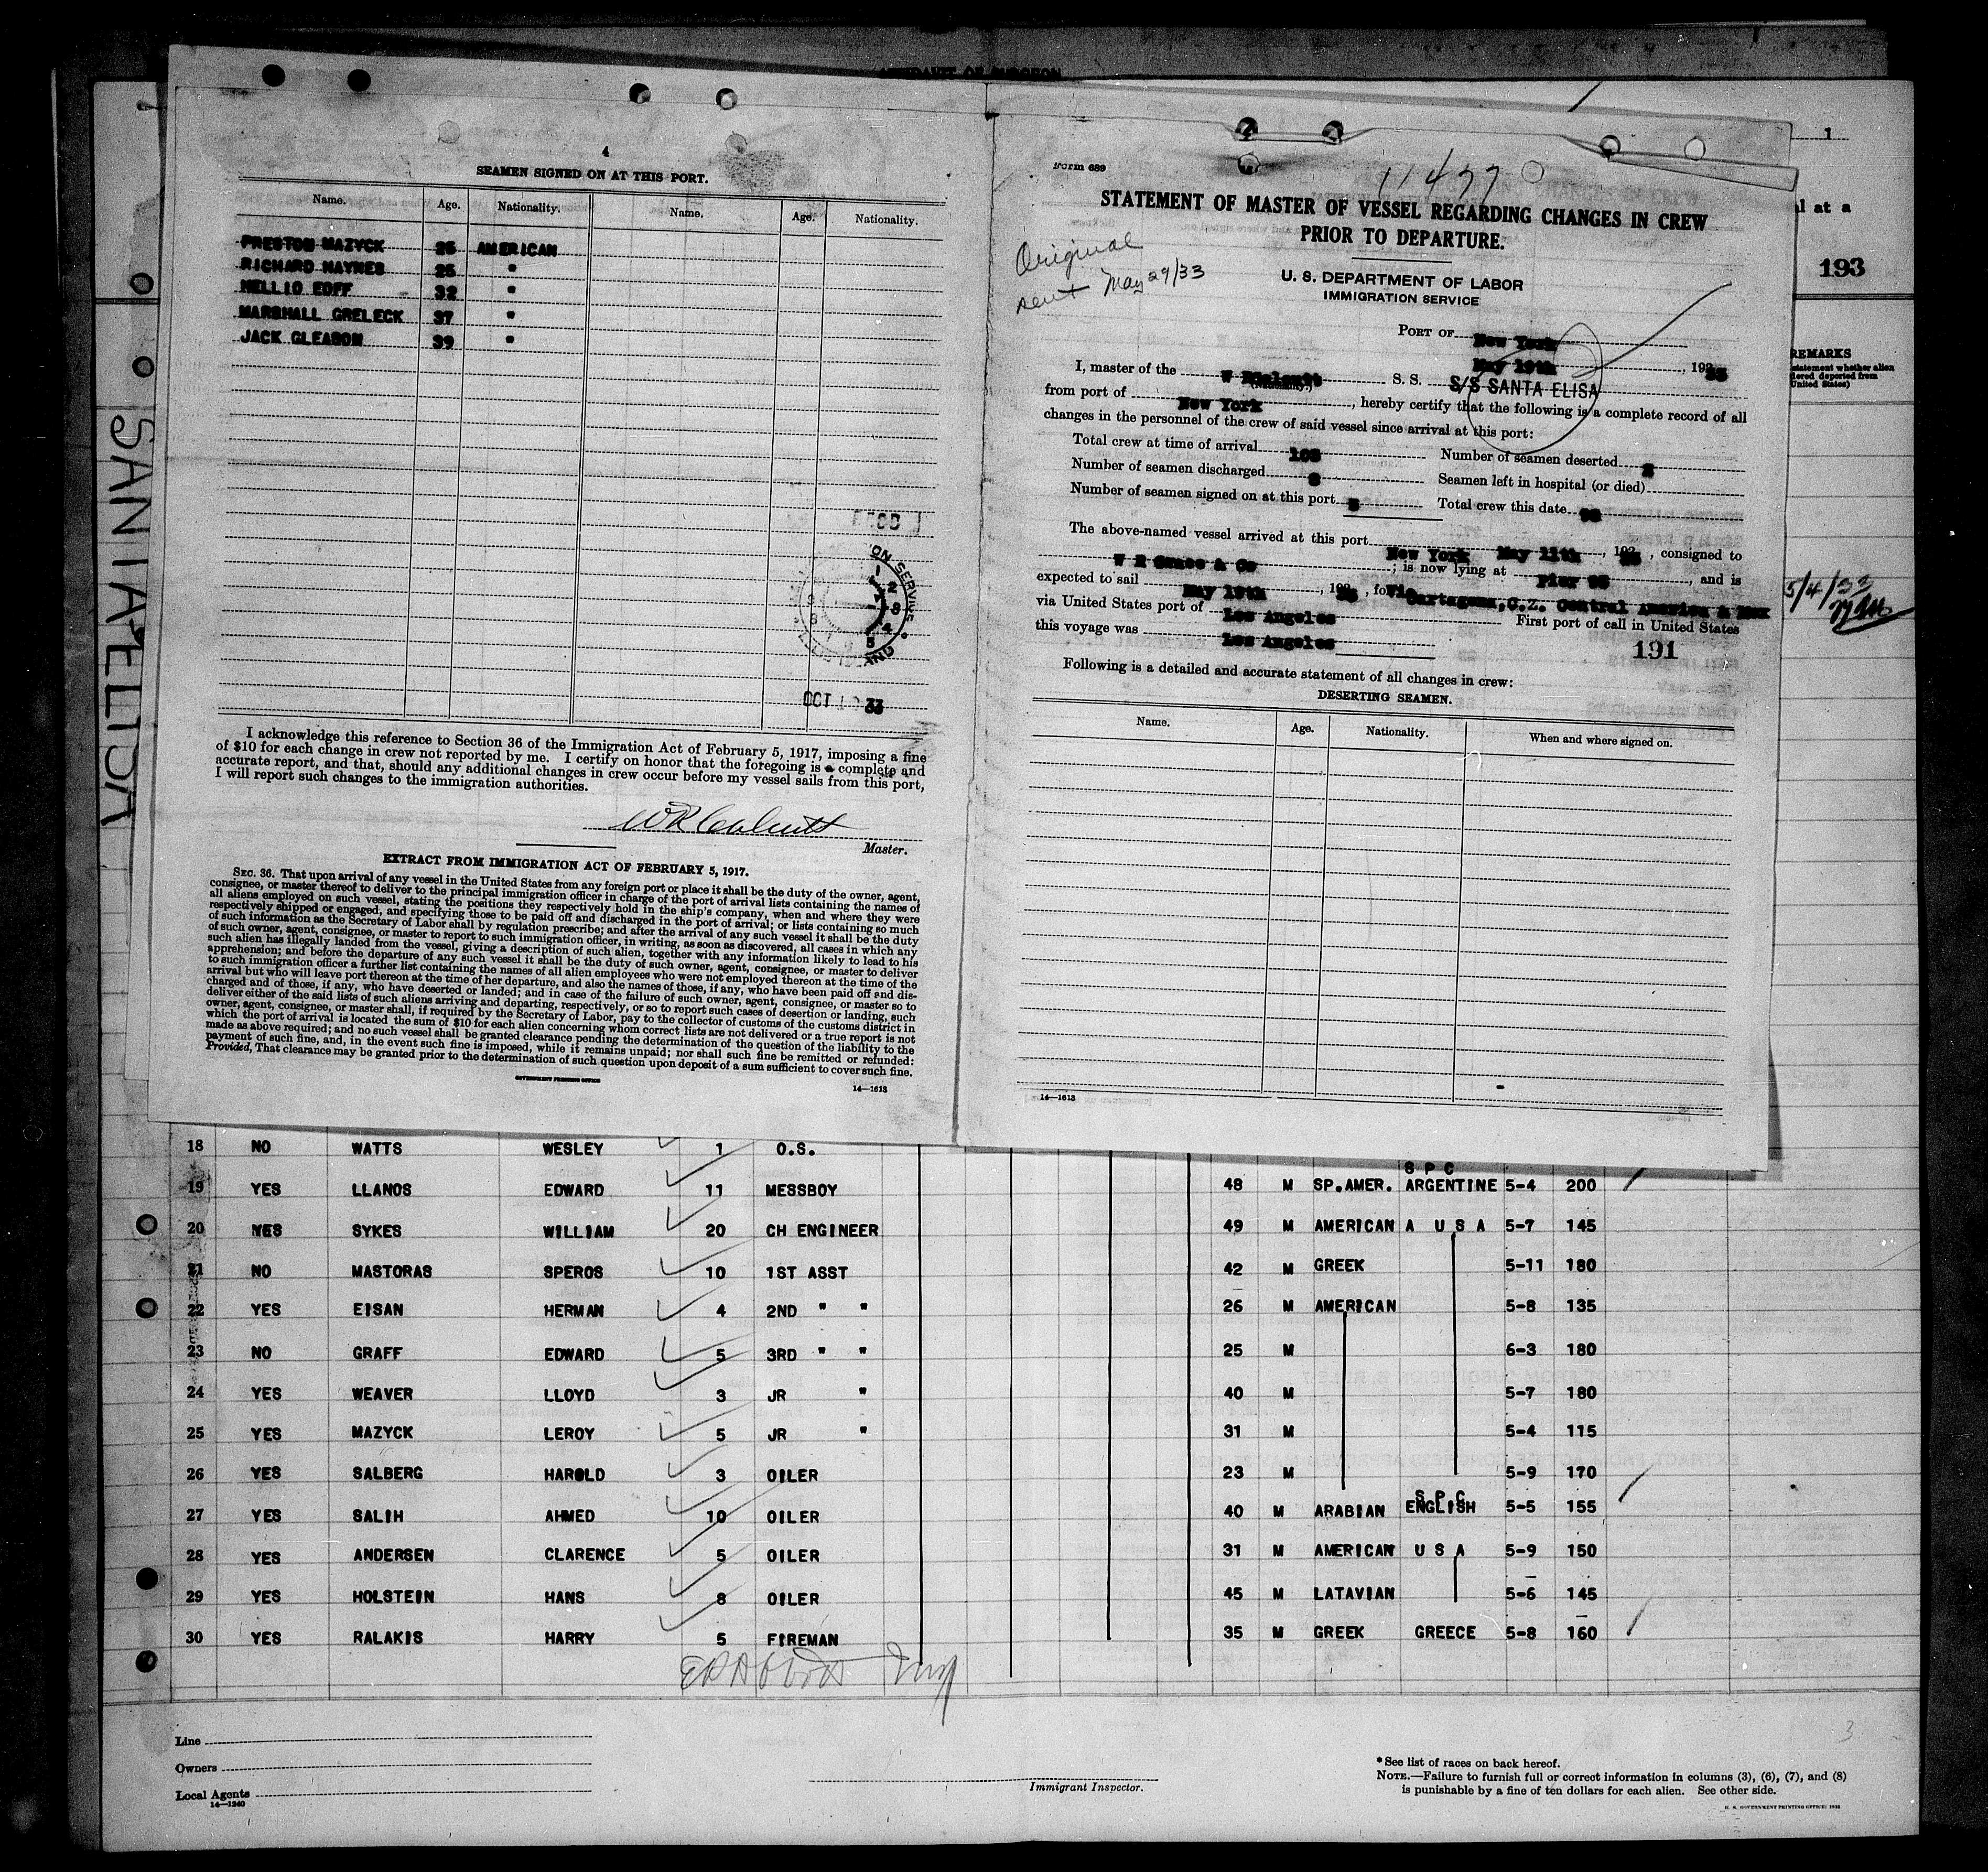 AFFIDAVIT OF SURGEON
4
SEAMEN SIGNED ON AT THIS PORT.
Name. Age. Nationality. Name. Age. Nationality.
PRESTON MAZYCK 25 AMERICAN
RICHARD HAYNES 25 "
NELLIO EOFF 32 "
MARSHALL GRELECK 37 "
JACK GLEASON 39 "
ON SERVICE
OCT 33
I acknowledge this reference to Section 36 of the Immigration Act of February 5, 1917, imposing a fine
of $10 for each change in crew not reported by me. I certify on honor that the foregoing is a complete and
accurate report, and that, should any additional changes in crew occur before my vessel sails from this port,
I will report such changes to the immigration authorities.
Master.
EXTRACT FROM IMMIGRATION ACT OF FEBRUARY 5, 1917.
SEC. 36. That upon arrival of any vessel in the United States from any foreign port or place it shall be the duty of the owner, agent,
consignee, or master thereof to deliver to the principal immigration officer in charge of the port of arrival lists containing the names of
all aliens employed on such vessel, stating the positions they respectively hold in the ship's company, when and where they were
respectively shipped or engaged, and specifying those to be paid off and discharged in the port of arrival; or lists containing so much
of such information as the Secretary of Labor shall by regulation prescribe; and after the arrival of any such vessel it shall be the duty
of such owner, agent, consignee, or master to report to such immigration officer, in writing, as soon as discovered, all cases in which any
such alien has illegally landed from the vessel, giving a description of such alien, together with any information likely to lead to his
apprehension; and before the departure of any such vessel it shall be the duty of such owner, agent, consignee, or master to deliver
to such immigration officer a further list containing the names of all alien employees who were not employed thereon at the time of the
arrival but who will leave port thereon at the time of her departure, and also the names of those, if any, who have been paid off and dis-
charged and of those, if any, who have deserted or landed; and in case of the failure of such owner, agent, consignee, or master so to
deliver either of the said lists of such aliens arriving and departing, respectively, or so to report such cases of desertion or landing, such
owner, agent, consignee, or master shall, if required by the Secretary of Labor, pay to the collector of customs of the customs district in
which the port of arrival is located the sum of $10 for each alien concerning whom correct lists are not delivered or a true report is not
made as above required; and no such vessel shall be granted clearance pending the determination of the question of the liability to the
payment of such fine, and, in the event such fine is imposed, while it remains unpaid; nor shall such fine be remitted or refunded:
Provided, That clearance may be granted prior to the determination of such question upon deposit of a sum sufficient to cover such fine.
GOVERNMENT PRINTING OFFICE
14—1613
Form 689
11477
STATEMENT OF MASTER OF VESSEL REGARDING CHANGES IN CREW
PRIOR TO DEPARTURE.
Original
sent May 29/33
U. S. DEPARTMENT OF LABOR
IMMIGRATION SERVICE
PORT OF New York
May 19th, 1933
I, master of the S. S. S/S SANTA ELISA
from port of New York, hereby certify that the following is a complete record of all
changes in the personnel of the crew of said vessel since arrival at this port:
Total crew at time of arrival Number of seamen deserted
Number of seamen discharged Seamen left in hospital (or died)
Number of seamen signed on at this port 5 Total crew this date
The above-named vessel arrived at this port New York May 11th, 193 , consigned to
W R Grace & Co ; is now lying at Pier , and is
expected to sail May 19th, 193 , for Via Cartagena, C.Z. Central America & Mex
via United States port of Los Angeles First port of call in United States
this voyage was Los Angeles
191
Following is a detailed and accurate statement of all changes in crew:
DESERTING SEAMEN.
Name. Age. Nationality. When and where signed on.
14—1613
1
l at a
193
REMARKS
statement whether alien
dered deported from
United States)
5/4/33
SANTA ELISA
18 NO WATTS WESLEY 1 O.S.
19 YES LLANOS EDWARD 11 MESSBOY 48 M SP.AMER. S P C ARGENTINE 5-4 200
20 YES SYKES WILLIAM 20 CH ENGINEER 49 M AMERICAN A U S A 5-7 145
21 NO MASTORAS SPEROS 10 1ST ASST 42 M GREEK 5-11 180
22 YES EISAN HERMAN 4 2ND " " 26 M AMERICAN 5-8 135
23 NO GRAFF EDWARD 5 3RD " " 25 M 6-3 180
24 YES WEAVER LLOYD 3 JR " 40 M 5-7 180
25 YES MAZYCK LEROY 5 JR " 31 M 5-4 115
26 YES SALBERG HAROLD 3 OILER 23 M 5-9 170
27 YES SALIH AHMED 10 OILER 40 M ARABIAN S P C ENGLISH 5-5 155
28 YES ANDERSEN CLARENCE 5 OILER 31 M AMERICAN U S A 5-9 150
29 YES HOLSTEIN HANS 8 OILER 45 M LATAVIAN 5-6 145
30 YES RALAKIS HARRY 5 FIREMAN 35 M GREEK GREECE 5-8 160
3
Line
Owners
Local Agents
14—1240
Immigrant Inspector.
* See list of races on back hereof.
NOTE.—Failure to furnish full or correct information in columns (3), (6), (7), and (8)
is punishable by a fine of ten dollars for each alien. See other side.